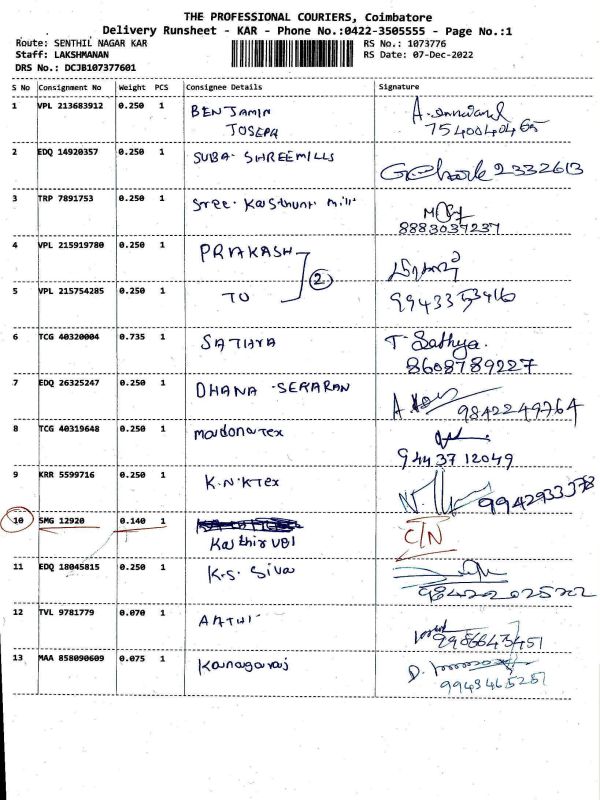 THE PROFESSIONAL COURIERS, Coimbatore
Delivery Runsheet - KAR - Phone No.:0422-3505555 - Page No.:1
Route: SENTHIL NAGAR KAR
Staff: LAKSHMANAN
DRS No.: DCJB107377601
RS No.: 1073776
RS Date: 07-Dec-2022
S No Consignment No Weight PCS Consignee Details Signature
1 VPL 213683912 0.250 1 BENJAMIN
JOSEPA
7540040465
2 EDQ 14920357 0.250 1 SUBA SHREEMILLS
2332613
3 TRP 7891753 0.250 1 Sree Kasthuri Mill
8883037237
4 VPL 215919780 0.250 1 PRAKASH
2
5 VPL 215754285 0.250 1 TO
9943353416
6 TCG 40320004 0.735 1 SATHYA T. Sathya.
8608789227
7 EDQ 26325247 0.250 1 DHANA SEKARAN
9842249764
8 TCG 40319648 0.250 1 madonatex
9443712049
9 KRR 5599716 0.250 1 K.N.KTex 9942933378
10 SMG 12920 0.140 1 C/N
Kathirvel
11 EDQ 18045815 0.250 1 K.S. Siva
12 TVL 9781779 0.070 1 AATHI
9986643451
13 MAA 858090609 0.075 1 Kanagaraj D.